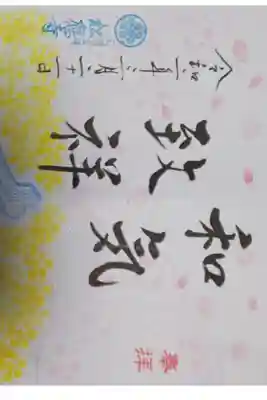 奉拝
和気
致祥
令和二年二月二十一日